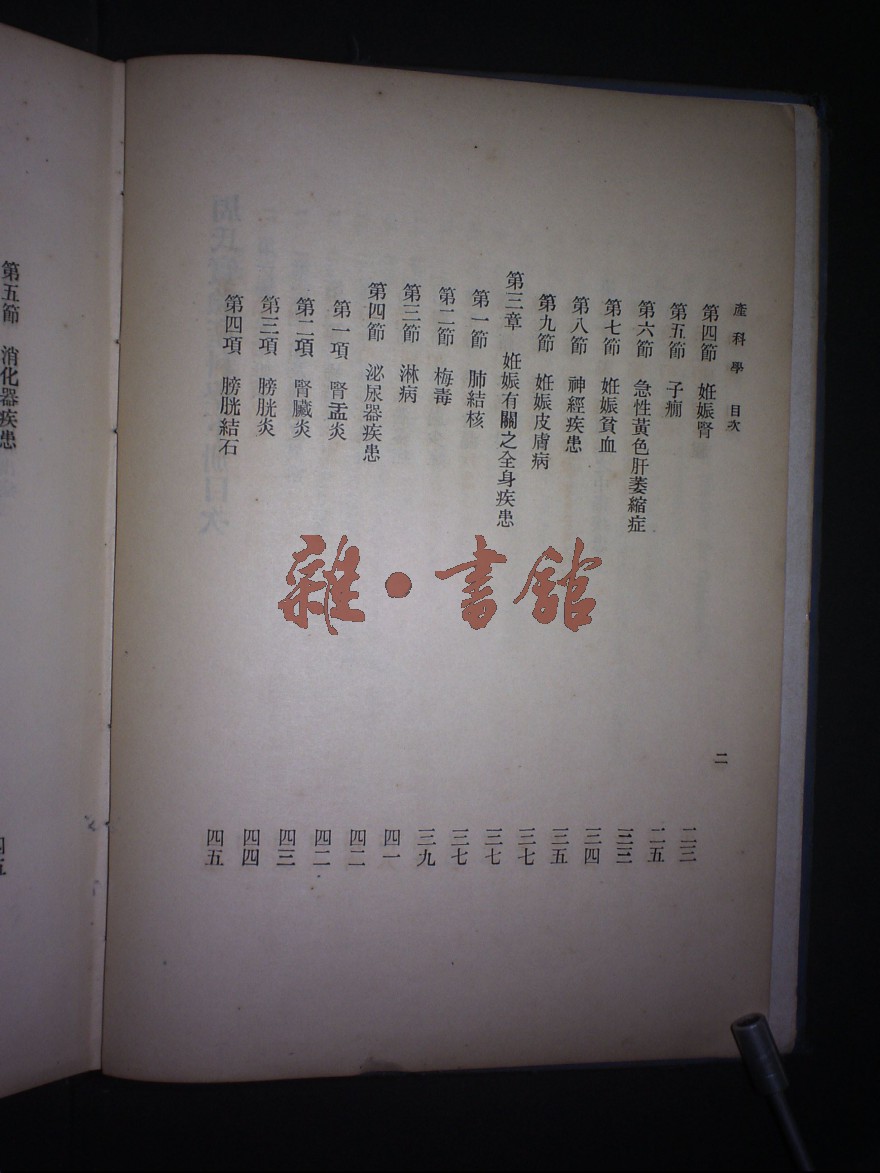 產科學 目次
二
第四節 妊娠腎 二三
第五節 子癇 二五
第六節 急性黃色肝萎縮症 三三
第七節 妊娠貧血 三四
第八節 神經疾患 三五
第九節 妊娠皮膚病 三七
第三章 妊娠有關之全身疾患 三七
第一節 肺結核 三七
第二節 梅毒 三九
第三節 淋病 四一
第四節 泌尿器疾患 四二
第一項 腎盂炎 四二
第二項 腎臟炎 四三
第三項 膀胱炎 四四
第四項 膀胱結石 四五
第五節 消化器疾患 四五
雜·書館